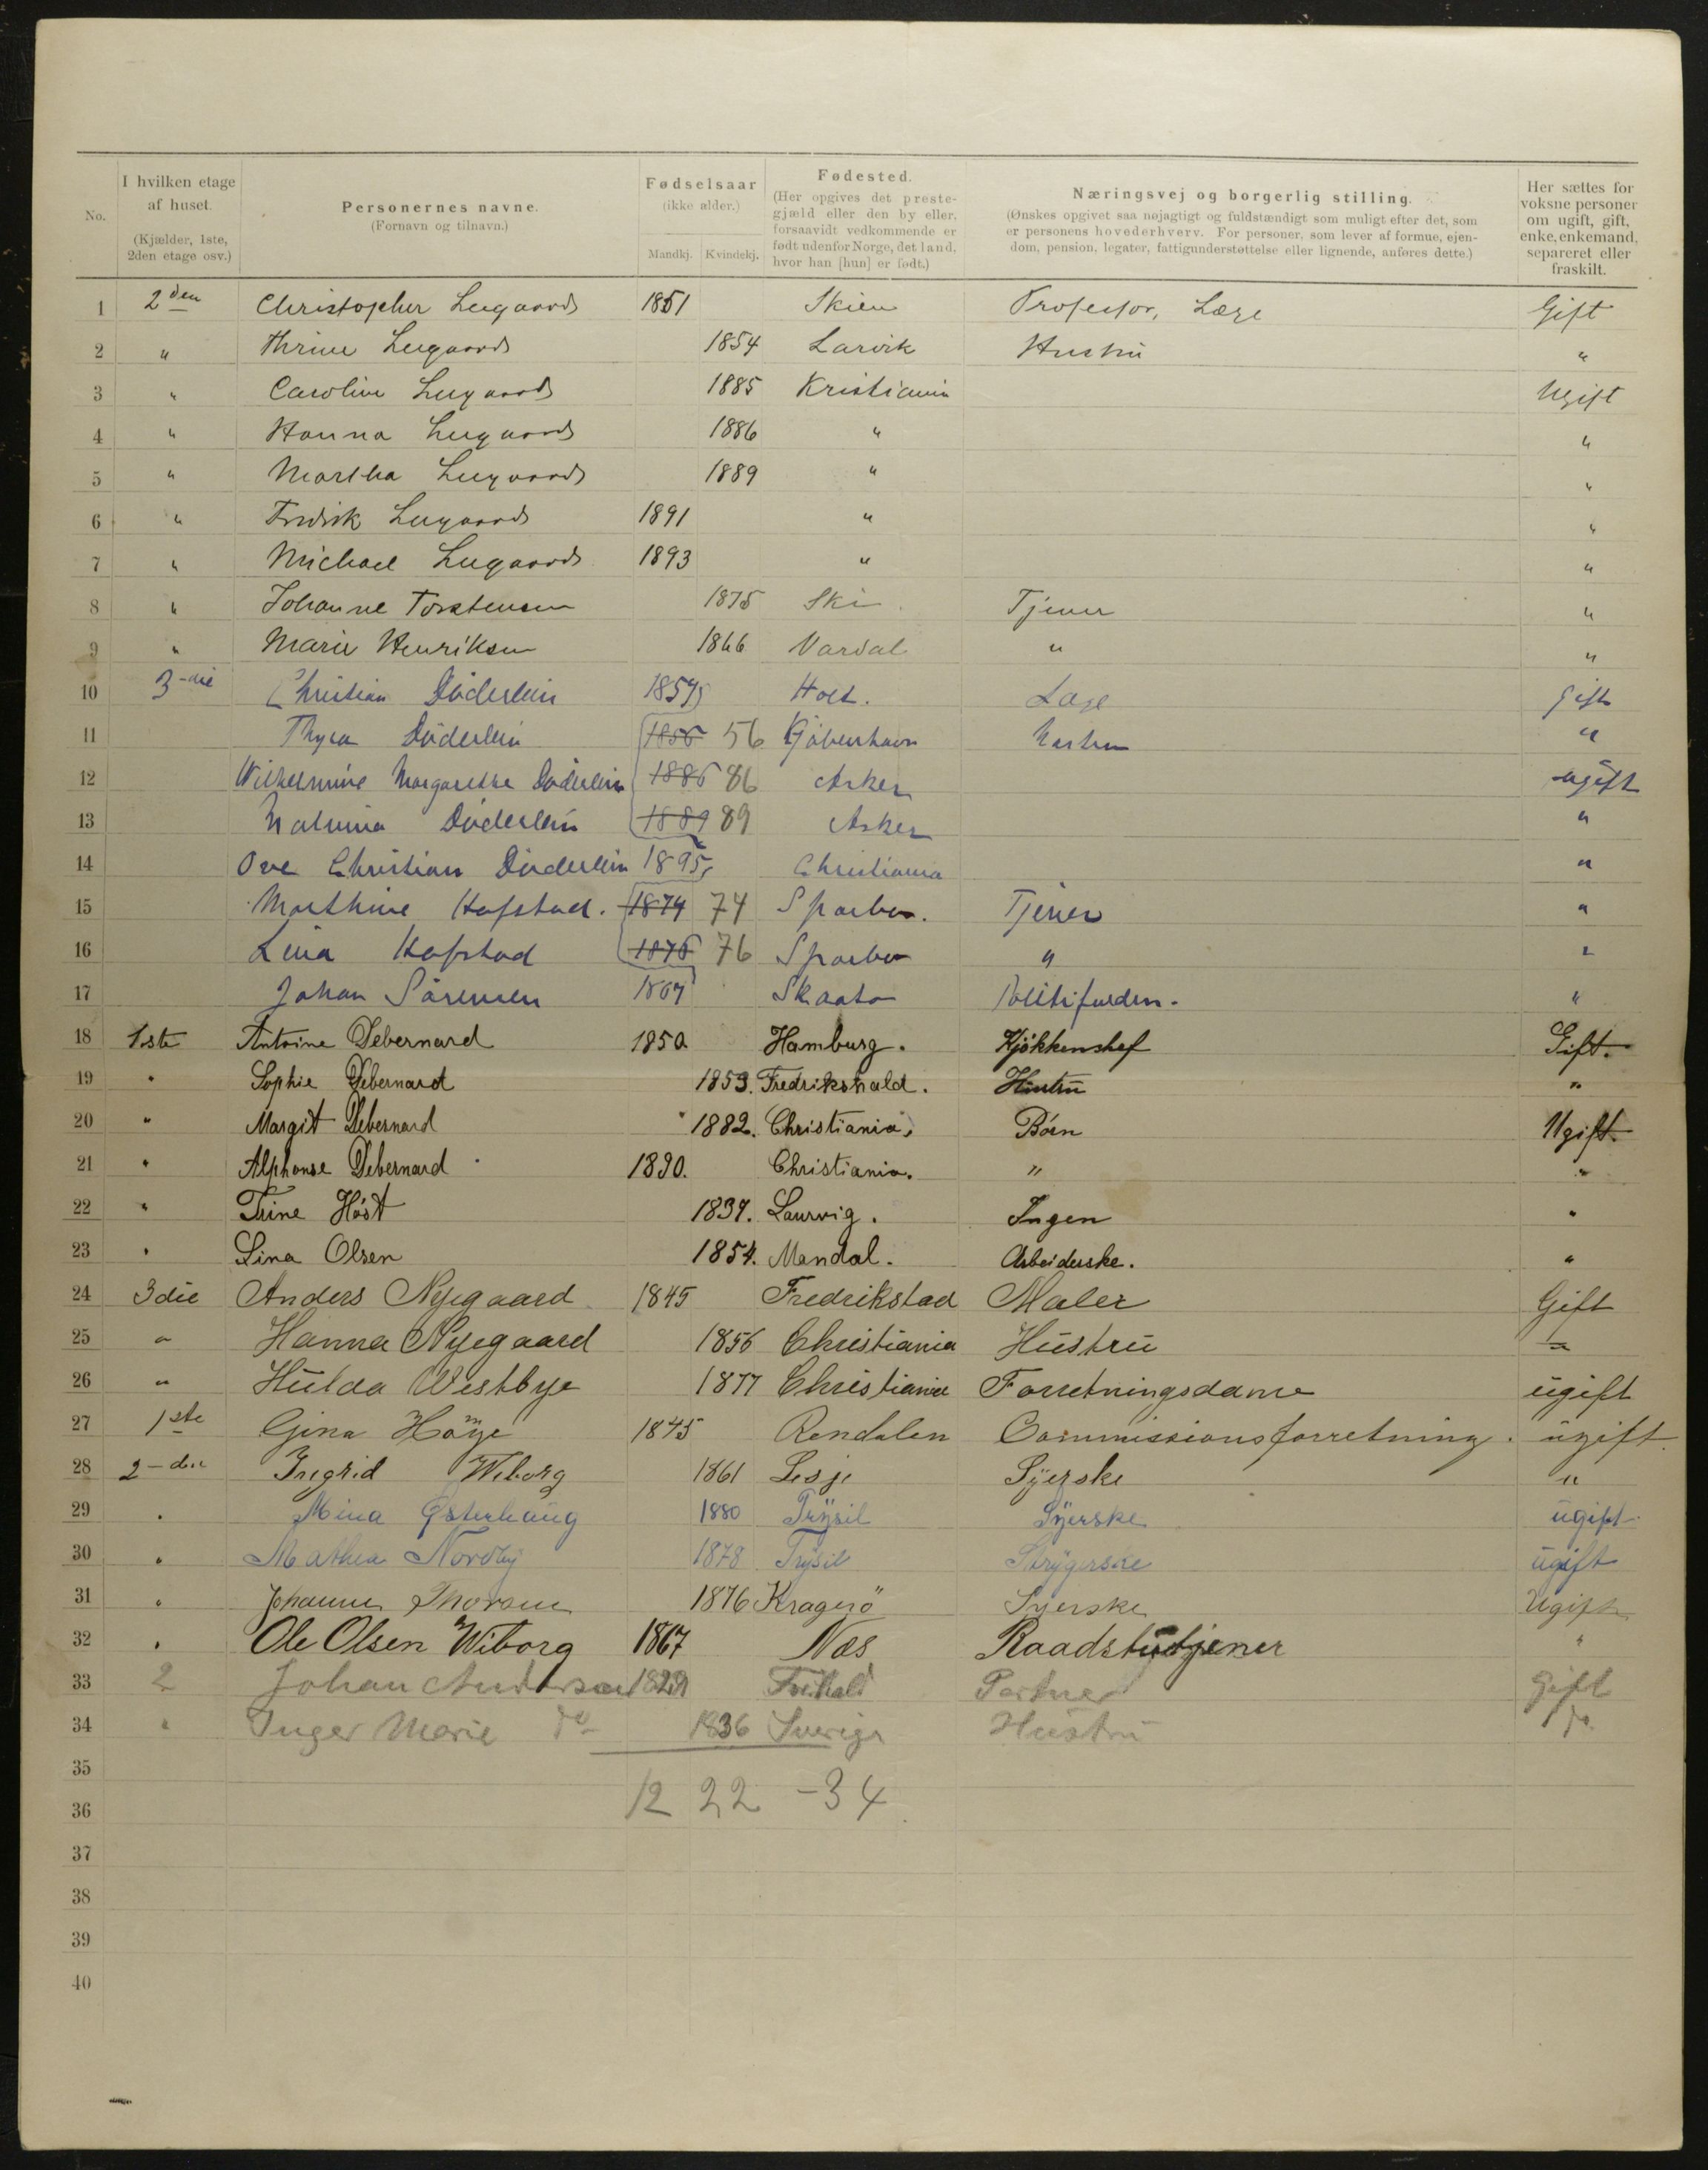 No. | I hvilken etage af huset. (Kjælder, 1ste, 2den etage osv.) | Personernes navne. (Fornavn og tilnavn.) | Fødselsaar (ikke alder.) Mandkj. Kvindekj. | Fødested. (Her opgives det prestegjæld eller den by eller, forsaavidt vedkommende er født udenfor Norge, det land, hvor han [hun] er født.) | Næringsvej og borgerlig stilling. (Ønskes opgivet saa nøjagtigt og fuldstændigt som muligt efter det, som er personens hovederhverv. For personer, som lever af formue, ejendom, pension, legater, fattigunderstøttelse eller lignende, anføres dette.) | Her sættes for voksne personer om ugift, gift, enke, enkemand, separeret eller fraskilt.
1 2den Christopher Leegaard 1851 Skien Professor, Læge Gift
2 " Thrine Leegaard 1854 Larvik Hustru "
3 " Caroline Leegaard 1885 Kristiania Ugift
4 " Hanna Leegaard 1886 " "
5 " Martha Leegaard 1889 " "
6 " Fredrik Leegaard 1891 " "
7 " Michael Leegaard 1893 " "
8 " Johanne Torstensen 1875 Ski. Tjener "
9 " Marie Henriksen 1866 Vardal " "
10 3-die Christian Döderlein Holt. Læge gift
11 Thyra Döderlein 1856 56 Kjøbenhavn Hustru "
12 Wilhelmine Margarethe Döderlein 1886 86 Asker ugift
13 Döderlein 1889 89 Asker "
14 Ove Christian Döderlein 1895 Christiania "
15 Marthine Hafstad. 1874 74 Sparbu. Tjener "
16 Lina Hafstad 1876 76 Sparbu " "
17 Johan Sørensen 1867 Skaatø "
18 1ste Antoine Debernard 1850. Hamburg. Kjökkenshef Gift.
19 " Sophie Debernard 1853. Fredrikshald. Hustru "
20 " Margit Debernard 1882. Christiania. Börn Ugift.
21 " Alphonse Debernard 1890. Christiania. " "
22 " Trine Höst 1837. Laurvig. Ingen "
23 " Lina Olsen 1854. Mandal. Arbeiderske. "
24 3die Anders Nyegaard 1845 Fredrikstad Maler Gift
25 " Hanna Nyegaard 1856 Christiania Hustru "
26 " Hulda Westbye 1877 Christiania Forretningsdame ugift
27 1ste Gina Höye 1845 Rendalen Commissionsforretning. ugift.
28 2-den Ingrid Wiborg 1861 Lesje Syerske "
29 " Mina Østerhaug 1880 Trysil Syerske ugift
30 " Mathea Nordby 1878 Trysil Strygerske ugift
31 " Johanne Thorsen 1876 Kragerö Syerske Ugift
32 " Ole Olsen Wiborg 1867 Næs Raadstutjener "
33 2 Johan Andersen 1829 Frhald Portner Gift
34 " Inger Marie do 1836 Sverige Hustru do
35
12 22 -34
36
37
38
39
40